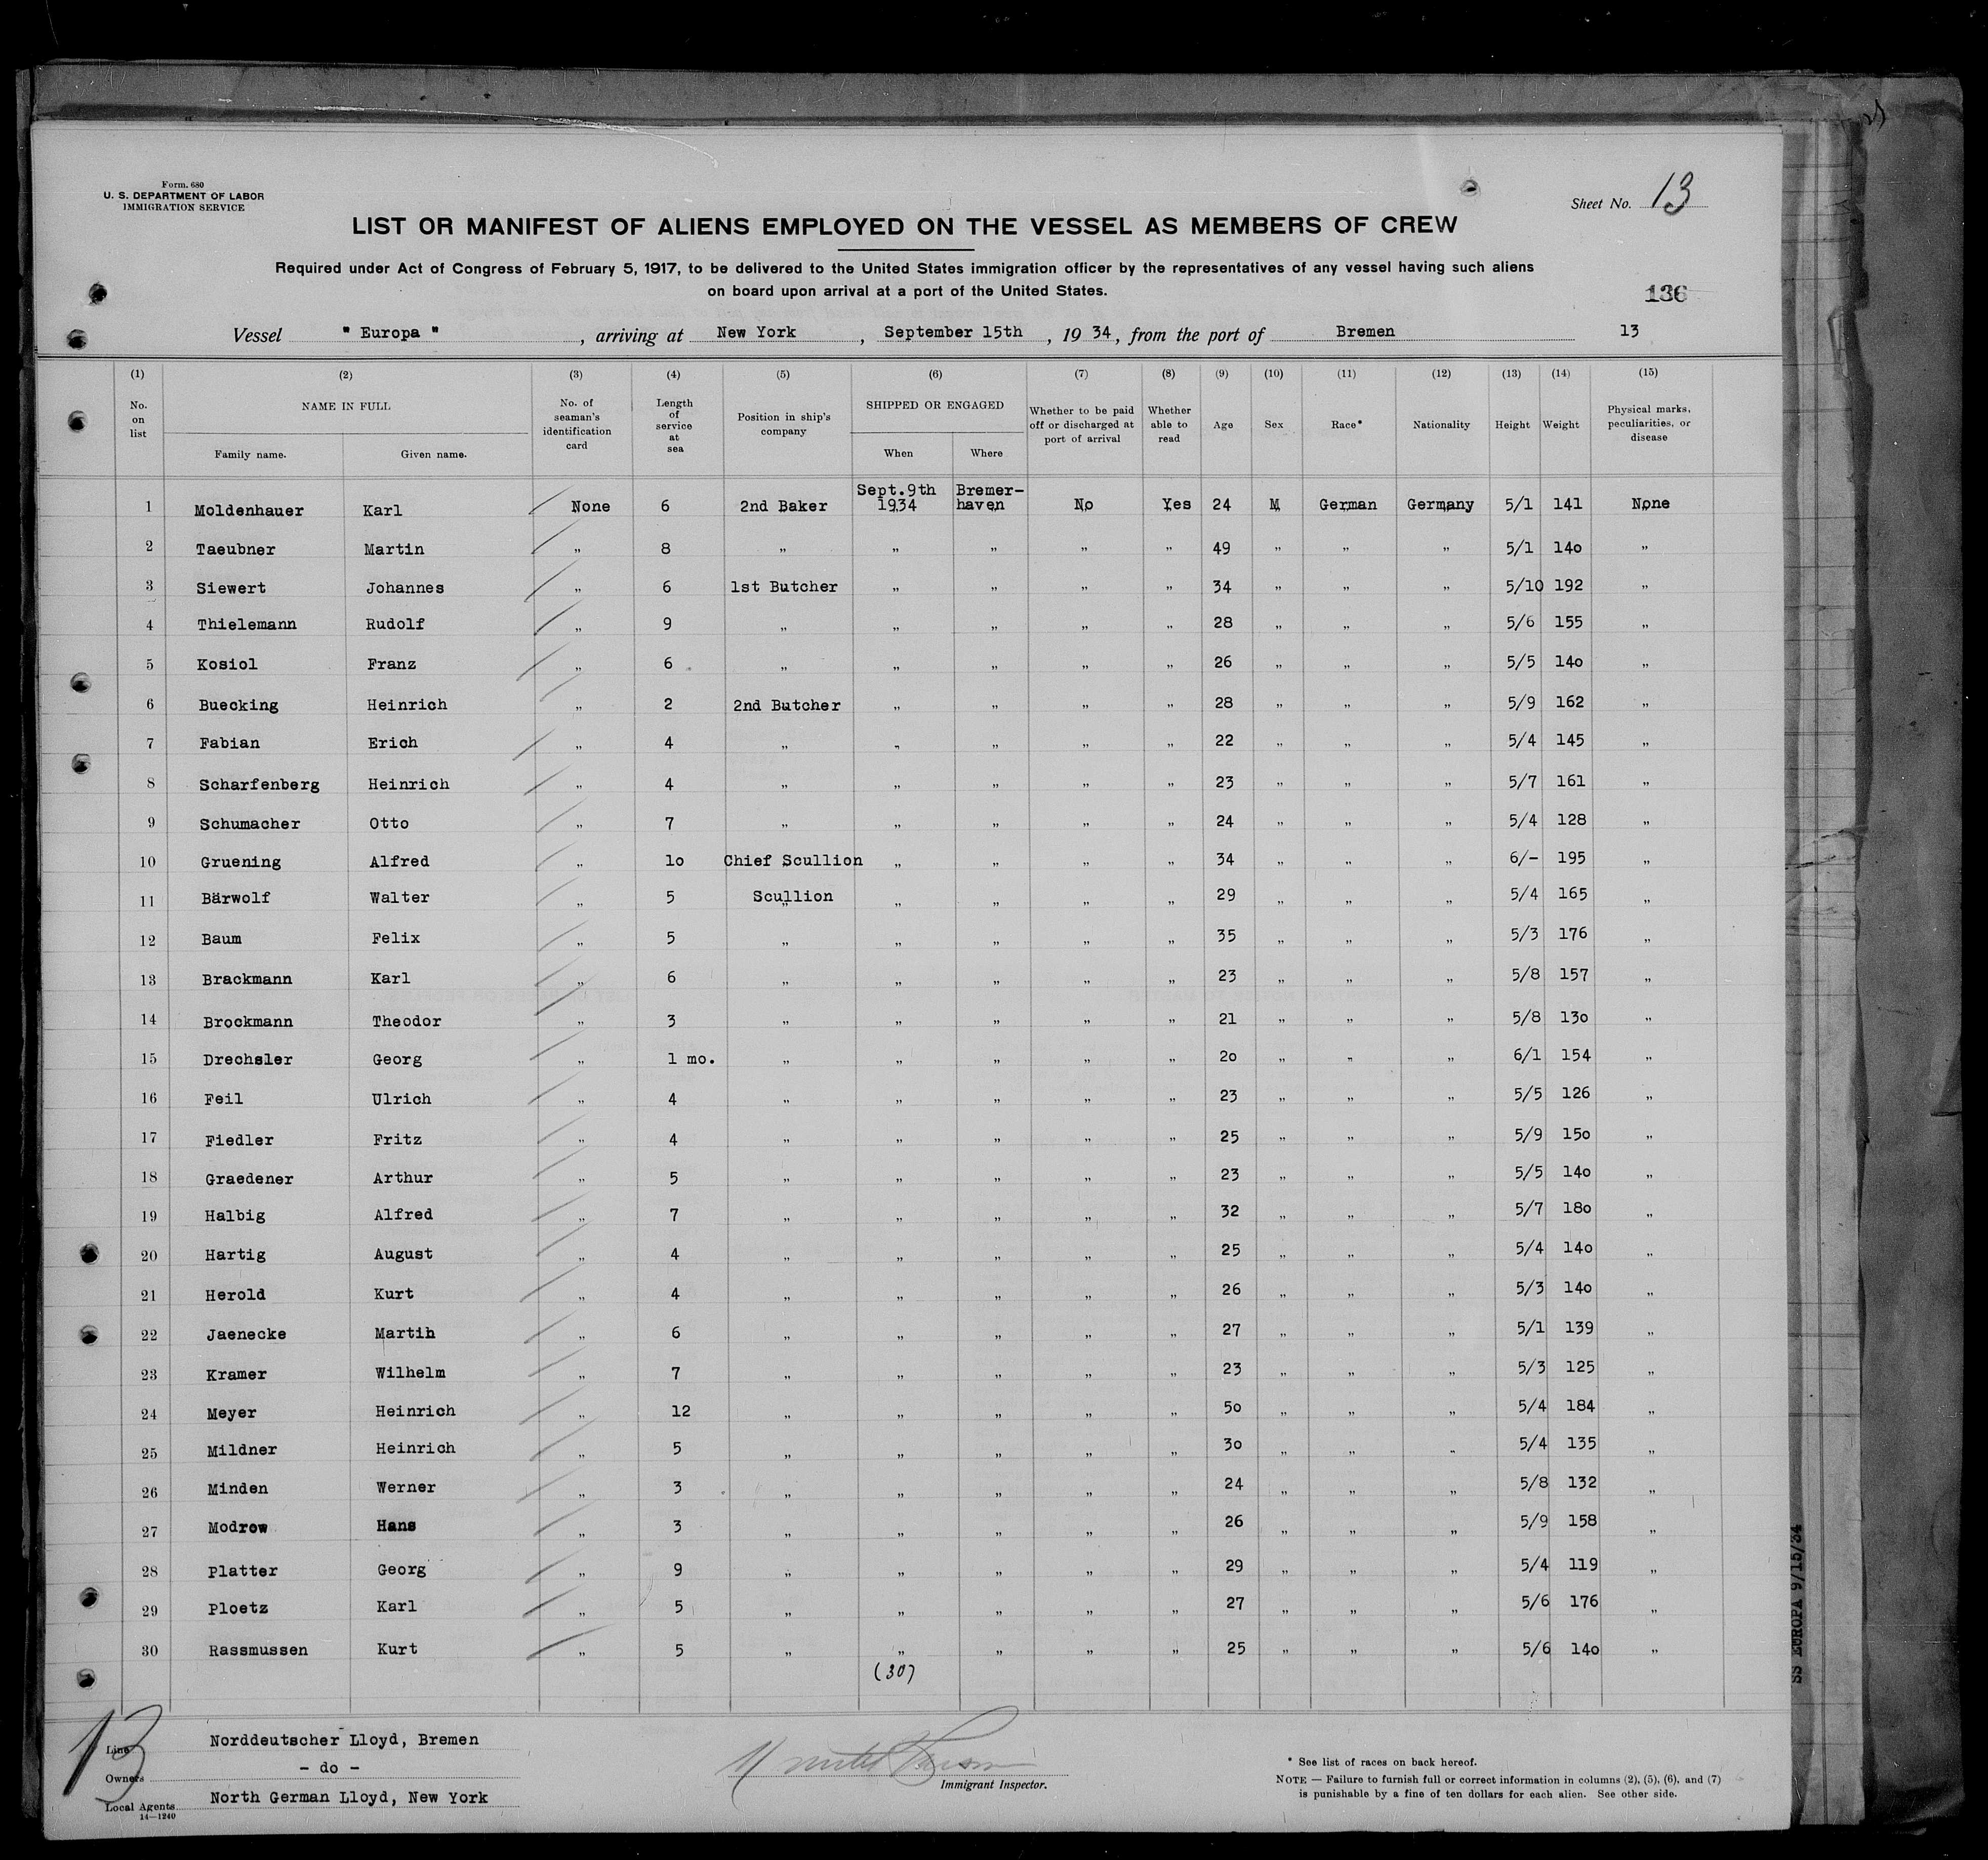 Form. 680
U. S. DEPARTMENT OF LABOR
IMMIGRATION SERVICE
Sheet No. 13
LIST OR MANIFEST OF ALIENS EMPLOYED ON THE VESSEL AS MEMBERS OF CREW
Required under Act of Congress of February 5, 1917, to be delivered to the United States immigration officer by the representatives of any vessel having such aliens
on board upon arrival at a port of the United States.
136
Vessel " Europa " , arriving at New York , September 15th , 19 34 , from the port of Bremen 13
(1) (2) (3) (4) (5) (6) (7) (8) (9) (10) (11) (12) (13) (14) (15)
No. on list NAME IN FULL Family name. Given name. No. of seaman's identification card Length of service at sea Position in ship's company SHIPPED OR ENGAGED When Where Whether to be paid off or discharged at port of arrival Whether able to read Age Sex Race* Nationality Height Weight Physical marks, peculiarities, or disease
1 Moldenhauer Karl None 6 2nd Baker Sept.9th 1934 Bremer-haven No Yes 24 M German Germany 5/1 141 None
2 Taeubner Martin „ 8 „ „ „ „ „ 49 „ „ „ 5/1 14o „
3 Siewert Johannes „ 6 1st Butcher „ „ „ „ 34 „ „ „ 5/10 192 „
4 Thielemann Rudolf „ 9 „ „ „ „ „ 28 „ „ „ 5/6 155 „
5 Kosiol Franz „ 6 „ „ „ „ „ 26 „ „ „ 5/5 14o „
6 Buecking Heinrich „ 2 2nd Butcher „ „ „ „ 28 „ „ „ 5/9 162 „
7 Fabian Erich „ 4 „ „ „ „ „ 22 „ „ „ 5/4 145 „
8 Scharfenberg Heinrich „ 4 „ „ „ „ „ 23 „ „ „ 5/7 161 „
9 Schumacher Otto „ 7 „ „ „ „ „ 24 „ „ „ 5/4 128 „
10 Gruening Alfred „ 1o Chief Scullion „ „ „ „ 34 „ „ „ 6/- 195 „
11 Bärwolf Walter „ 5 Scullion „ „ „ „ 29 „ „ „ 5/4 165 „
12 Baum Felix „ 5 „ „ „ „ „ 35 „ „ „ 5/3 176 „
13 Brackmann Karl „ 6 „ „ „ „ „ 23 „ „ „ 5/8 157 „
14 Brockmann Theodor „ 3 „ „ „ „ „ 21 „ „ „ 5/8 13o „
15 Drechsler Georg „ 1 mo. „ „ „ „ „ 2o „ „ „ 6/1 154 „
16 Feil Ulrich „ 4 „ „ „ „ „ 23 „ „ „ 5/5 126 „
17 Fiedler Fritz „ 4 „ „ „ „ „ 25 „ „ „ 5/9 15o „
18 Graedener Arthur „ 5 „ „ „ „ „ 23 „ „ „ 5/5 14o „
19 Halbig Alfred „ 7 „ „ „ „ „ 32 „ „ „ 5/7 18o „
20 Hartig August „ 4 „ „ „ „ „ 25 „ „ „ 5/4 14o „
21 Herold Kurt „ 4 „ „ „ „ „ 26 „ „ „ 5/3 14o „
22 Jaenecke Martin „ 6 „ „ „ „ „ 27 „ „ „ 5/1 139 „
23 Kramer Wilhelm „ 7 „ „ „ „ „ 23 „ „ „ 5/3 125 „
24 Meyer Heinrich „ 12 „ „ „ „ „ 5o „ „ „ 5/4 184 „
25 Mildner Heinrich „ 5 „ „ „ „ „ 3o „ „ „ 5/4 135 „
26 Minden Werner „ 3 „ „ „ „ „ 24 „ „ „ 5/8 132 „
27 Modrow Hans „ 3 „ „ „ „ „ 26 „ „ „ 5/9 158 „
28 Platter Georg „ 9 „ „ „ „ „ 29 „ „ „ 5/4 119 „
29 Ploetz Karl „ 5 „ „ „ „ „ 27 „ „ „ 5/6 176 „
30 Rassmussen Kurt „ 5 „ „ „ „ „ 25 „ „ „ 5/6 14o „
(30)
13
Line Norddeutscher Lloyd, Bremen
Owners - do -
Local Agents North German Lloyd, New York
14—1240
Immigrant Inspector.
* See list of races on back hereof.
NOTE — Failure to furnish full or correct information in columns (2), (5), (6), and (7)
is punishable by a fine of ten dollars for each alien. See other side.
SS EUROPA 9/15/34